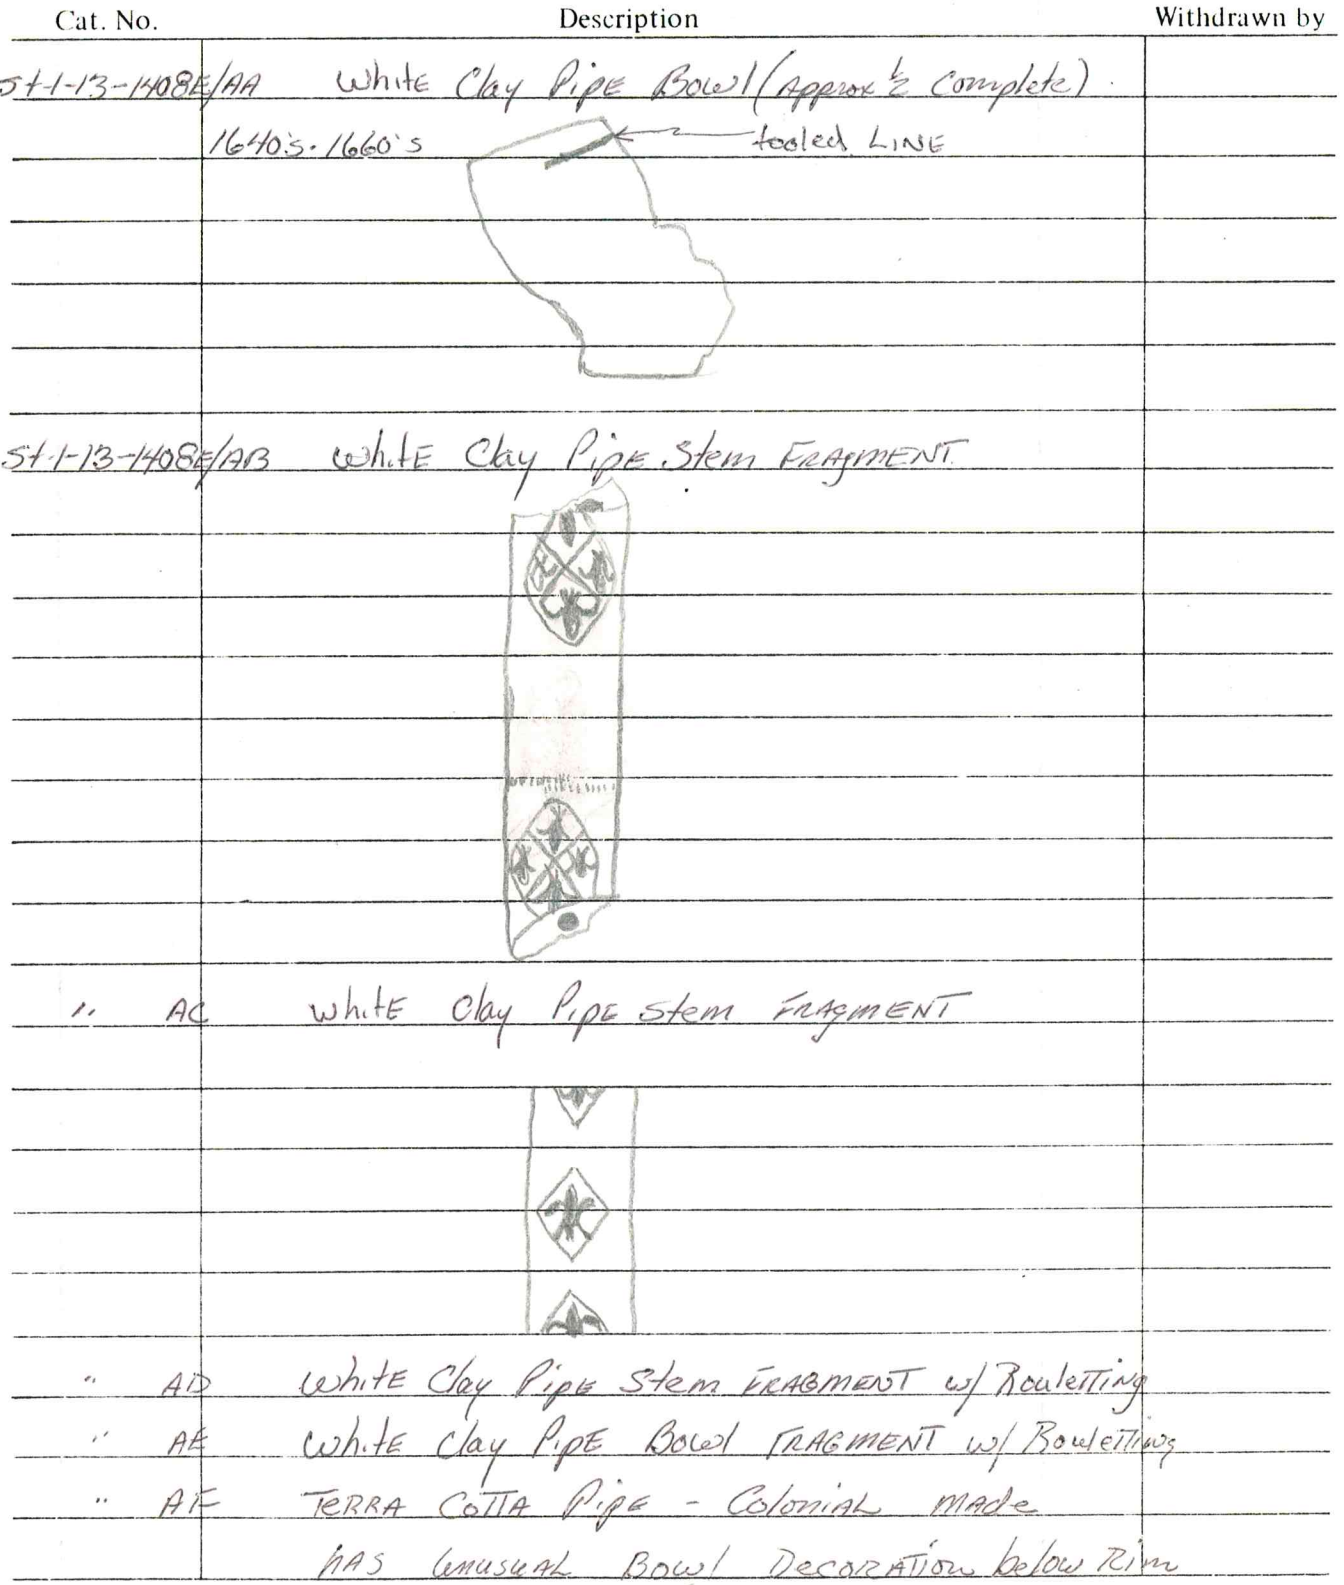 Cat. No. Description Withdrawn by
St 1-13-1408E/AA White Clay Pipe Bowl (Approx ½ Complete)
1640's-1660's tooled LINE
St 1-13-1408E/AB White Clay Pipe Stem FRAgmENT
" AC White Clay Pipe Stem FRAgmENT
" AD White Clay Pipe Stem FRAGMENT w/ Rouletting
" AE White Clay Pipe Bowl FRAGMENT w/ Rouletting
" AF TERRA COTTA Pipe - Colonial made
hAS UnusuAL Bowl DecoRATion below Rim